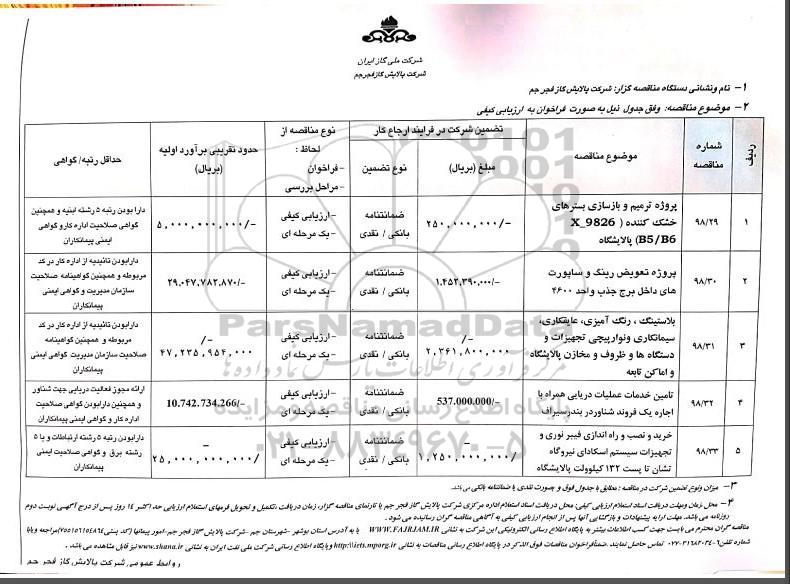 شرکت ملی گاز ایران
شرکت پالایش گاز فجر جم
۱- نام ونشانی دستگاه مناقصه گزار: شرکت پالایش گاز فجر جم
۲- موضوع مناقصه: وفق جدول ذیل به صورت فراخوان به ارزیابی کیفی
ردیف
شماره مناقصه
موضوع مناقصه
تضمین شرکت در فرایند ارجاع کار
مبلغ (ریال)
نوع تضمین
نوع مناقصه از لحاظ :
-فراخوان
-مراحل بررسی
حدود تقریبی برآورد اولیه (ریال)
حداقل رتبه/ گواهی
۱
۹۸/۲۹
پروژه ترمیم و بازسازی بسترهای
خشک کننده ( X_9826
B5/B6) پالایشگاه
۲۵۰,۰۰۰,۰۰۰/-
ضمانتنامه
بانکی / نقدی
-ارزیابی کیفی
-یک مرحله ای
۵,۰۰۰,۰۰۰,۰۰۰/-
دارا بودن رتبه ۵ رشته ابنیه و همچنین
گواهی صلاحیت اداره کار و گواهی
ایمنی پیمانکاران
۲
۹۸/۳۰
پروژه تعویض رینگ و ساپورت
های داخل برج جذب واحد ۴۶۰۰
۱.۴۵۲,۳۹۰,۰۰۰/-
ضمانتنامه
بانکی / نقدی
-ارزیابی کیفی
-یک مرحله ای
۲۹.۰۴۷,۷۸۲,۸۷۰/-
دارابودن تائیدیه از اداره کار در کد
مربوطه و همچنین گواهینامه صلاحیت
سازمان مدیریت و گواهی ایمنی
پیمانکاران
۳
۹۸/۳۱
بلاستینگ ، رنگ آمیزی، عایقکاری،
سیمانکاری ونوار پیچی تجهیزات و
دستگاه ها و ظروف و مخازن پالایشگاه
و اماکن تابعه
-/
۲,۳۶۱,۸۰۰,۰۰۰
ضمانتنامه
بانکی / نقدی
-ارزیابی کیفی
-یک مرحله ای
-/
۴۷,۲۳۵,۹۵۴,۰۰۰
دارابودن تائیدیه از اداره کار در کد
مربوطه و همچنین گواهینامه
صلاحیت سازمان مدیریت گواهی ایمنی
پیمانکاران
۴
۹۸/۳۲
تامین خدمات عملیات دریایی همراه با
اجاره یک فروند شناور در بندر سیراف
537.000.000/-
ضمانتنامه
بانکی / نقدی
-ارزیابی کیفی
-یک مرحله ای
10.742.734.266/-
ارائه مجوز فعالیت دریایی جهت شناور
و همچنین دارابودن گواهی صلاحیت
اداره کار و گواهی ایمنی پیمانکاران
۵
۹۸/۳۳
خرید و نصب و راه اندازی فیبر نوری و
تجهیزات سیستم اسکادای نیروگاه
نشان تا پست ۱۳۲ کیلوولت پالایشگاه
-
۱,۲۵۰,۰۰۰,۰۰۰/
ضمانتنامه
بانکی / نقدی
-ارزیابی کیفی
-یک مرحله ای
-
۲۵,۰۰۰,۰۰۰,۰۰۰/
دارابودن رتبه ۵ رشته ارتباطات و یا ۵
رشته برق و گواهی صلاحیت ایمنی
پیمانکاران
ParsNamadData
۰۲۱-۸۸۳۴۹۶۷۰-۵
۳- میزان ونوع تضمین شرکت در مناقصه: مطابق با جدول فوق و بصورت نقدی یا ضمانتنامه بانکی می باشد.
۴- محل زمان ومهلت دریافت اسناد استعلام ارزیابی کیفی: محل دریافت اسناد استعلام اداره مرکزی شرکت پالایش گاز فجر جم یا تارنمای مناقصه گزار، زمان دریافت، تکمیل و تحویل فرمهای استعلام ارزیابی حداکثر ۱۴ روز پس از درج آگهی نوبت دوم
روزنامه می باشد. مهلت ارایه پیشنهادات و بازگشایی آنها پس از انجام ارزیابی کیفی به آگاهی مناقصه گران رسانیده می شود .
مناقصه گران محترم می بایست جهت کسب اطلاعات بیشتر به پایگاه اطلاع رسانی الکترونیکی این شرکت به نشانی WWW.FAJRJAM.IR یا به آدرس استان بوشهر -شهرستان جم -شرکت پالایش گاز فجر جم-امور پیمانها (کد پستی ۷۵۵۱۵۶۱۵۴۸۶۴) مراجعه ویا با
شماره تلفن ۰۷۷-۳۱۶۸۳۰۳۴-۶ تماس حاصل نمایند .ضمناً فراخوان مناقصات فوق الذکر در پایگاه اطلاع رسانی مناقصات به نشانی http://iets.mporg.ir وپایگاه اطلاع رسانی شرکت ملی نفت ایران به نشانی www.shana.ir نیز قابل مشاهده می باشد .
روابط عمومی شرکت پالایش گاز فجر جم